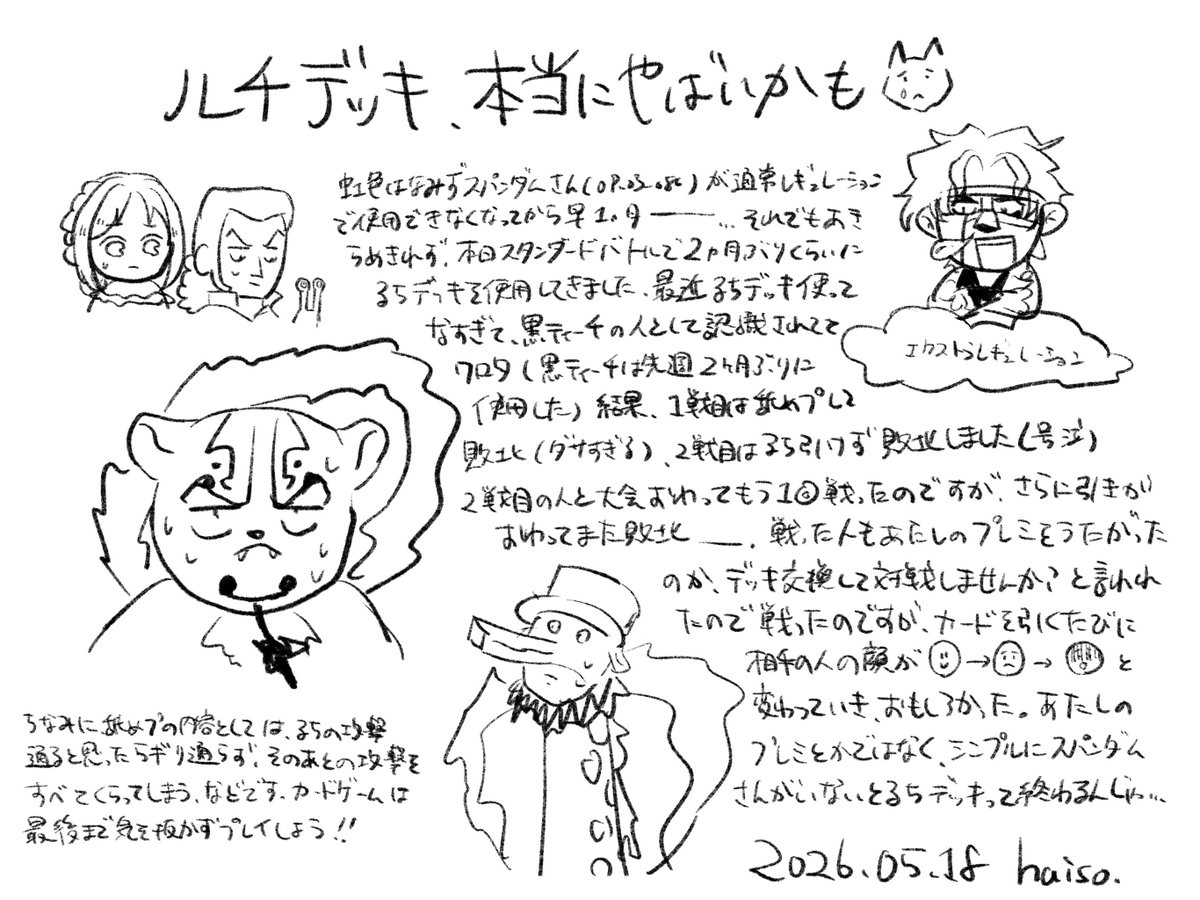 ルチデッキ、本当にやばいかも
虹色はなみずスパンダムさん(OP.03-080)が通常レギュレーション
で使用できなくなってから早1ヶ月――…それでもあき
らめきれず、本日スタンダードバトルで2ヵ月ぶりくらいに
るちデッキを使用してきました、最近るちデッキ使って
なすぎて、黒ティーチの人として認識されてて
ワロタ(黒ティーチは先週2ヶ月ぶりに
使用した)結果、1戦目は舐めプして
敗北(ダサすぎる)、2戦目はるち引けず敗北しました(号泣)
2戦目の人と大会おわってもう1回戦ったのですが、さらに引きが
おわってまた敗北――.戦った人もあたしのプレミをうたがった
のか、デッキ交換して対戦しませんか?と言われ
たので戦ったのですが、カードを引くたびに
相手の人の顔が→→と
変わっていき、おもしろかった。あたしの
プレミとかではなく、シンプルにスパンダム
さんがいないとるちデッキって終わるんじゃ…
エクストラレギュレーション
ちなみに舐めプの内容としては、るちの攻撃
通ると思ったらギリ通らず、そのあとの攻撃を
すべてくらってしまう、などです、カードゲームは
最後まで気を抜かずプレイしよう!!
2026.05.18 haiso.